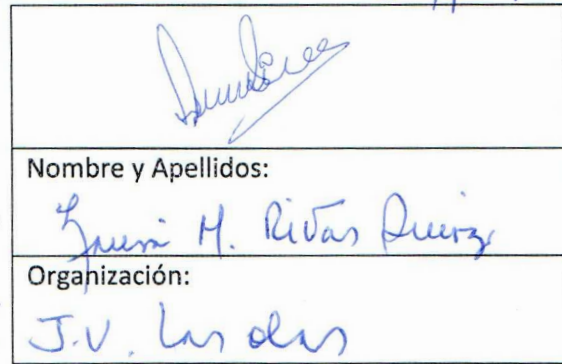 Nombre y Apellidos:
M. Rivas Quiroz
Organización:
J.V. Las Olas